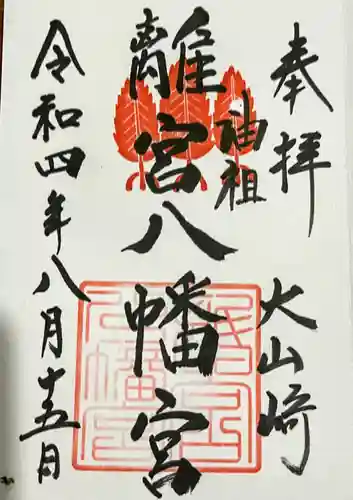 奉拝 大山崎
油祖
離宮八幡宮
令和四年八月十五日